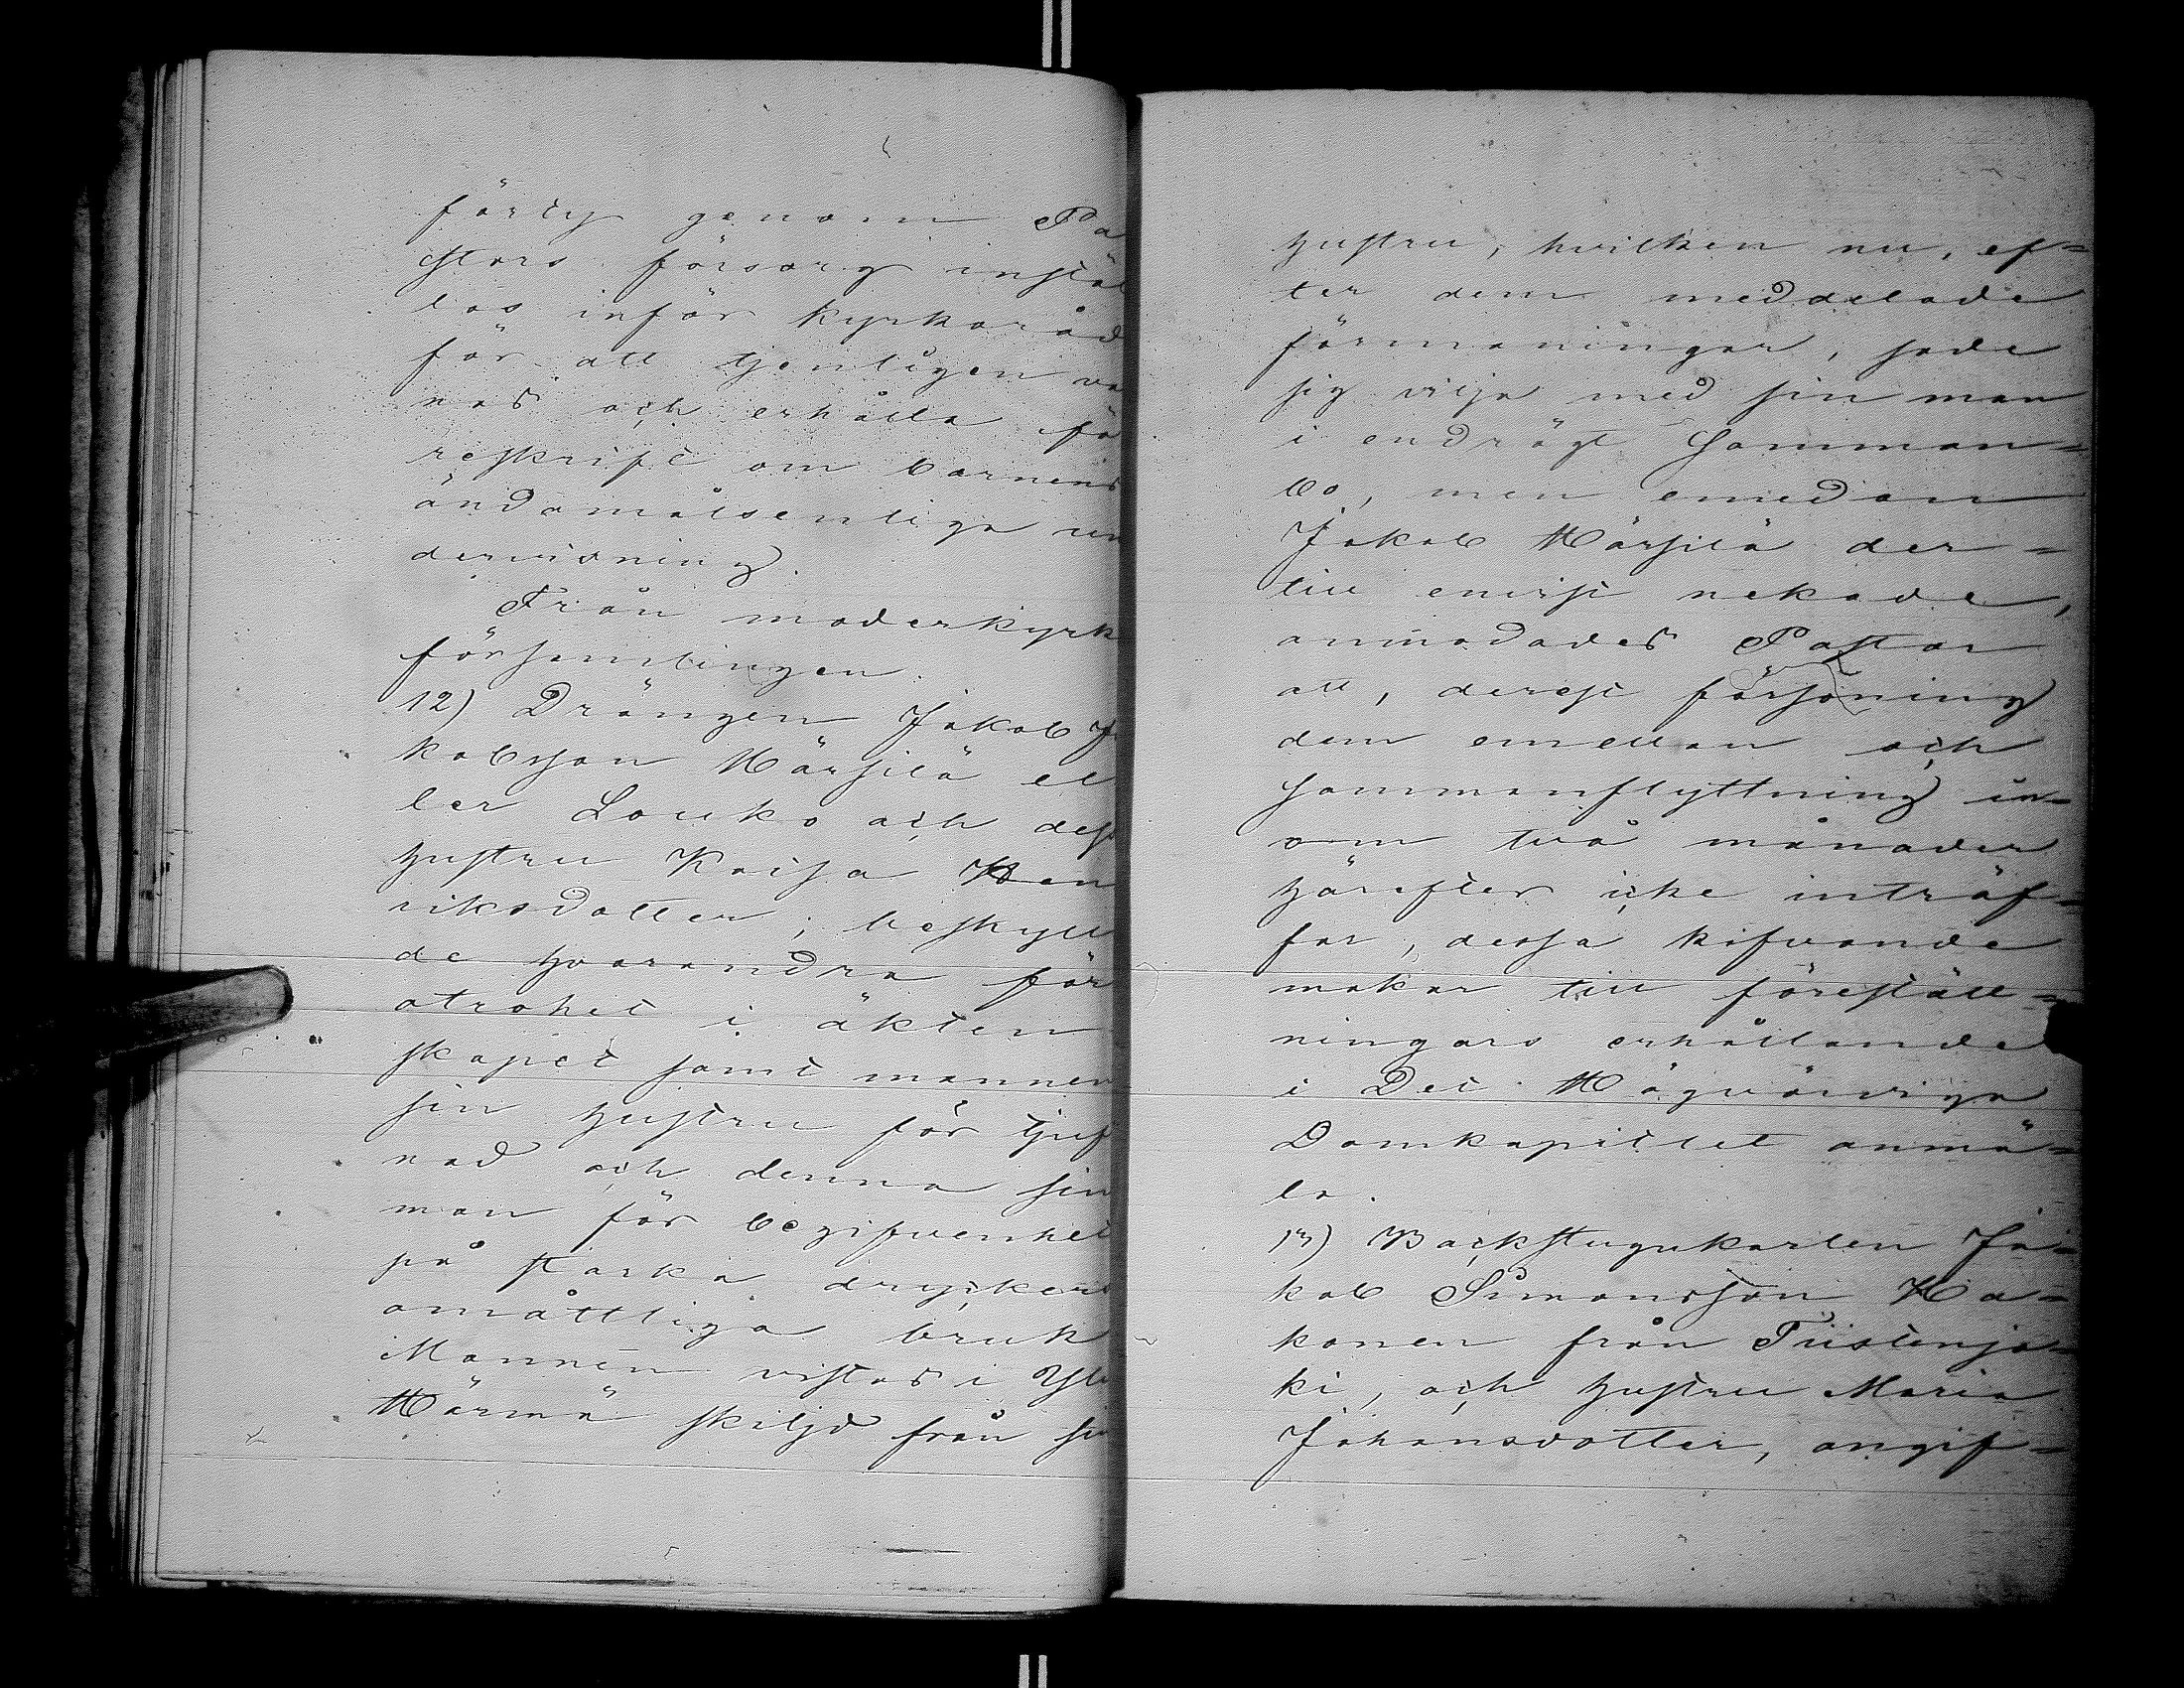 förty genom Pa
stors försorg instäl
las inför kyrkoråd
för att tjenligen va
nas och erhålla fö
reskrift om barnens
ändamålsenliga un
dervisning.
Från moderkyrk
församlingen.
12) Drängen Jakob Ja
kobsson Härsilä el
ler Louko och dess
hustru Kaisa Hen
riksdotter; beskyll
de hvarandra för
otrohet i äkten
skapet samt mannen
sin hustru för tjuf
nad och denna sin
man för begifvenhet
på starka dryckers
omåttliga bruk
Mannen vistas i Yli
Härmä skiljd från sin
hustru, hvilken nu, ef=
ter dem meddelade
förmaningar, sade
sig vilja med sin man
i endrägt samman=
bo, men emedan
Jakob Härsilä der=
till envist nekade,
anmodades Pastor
att, derest försoning
dem emellan och
sammanflyttning in=
om två månader
härefter icke inträf=
far, dessa kifvande
makar till föreställ=
ningars erhållande
i Det Högvördiga
Domkapitlet anmä=
la.
13) Backstugukarlen Ja=
kob Simonsson Ha=
konen från Tiistenjo=
ki, och hustru Maria
Johansdotter, angif=